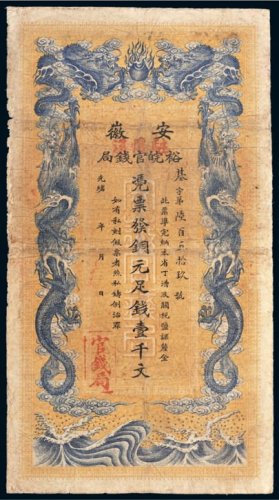 安徽
裕皖官錢局
基字第陸百立拾玖號
此票準完納本省丁漕及關稅鹽課釐金
憑票發銅元足錢壹千文
如有私刻假票者照私鑄例治罪
光緒 年 月 日
官錢局